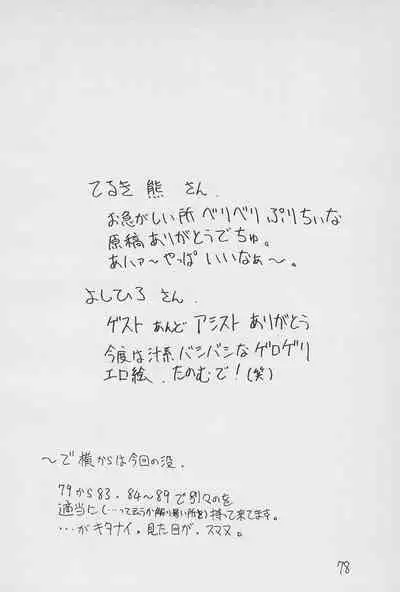 てるき 熊 さん.
お急がしい所 ベリベリ ぷりちぃな
原稿ありがとうでちゅ。
あハァ〜やっぱ いいなぁ〜。
よしひろ さん.
ゲスト あんど アシスト ありがとう
今度は汁系 バシバシな ゲロゲリ
エロ絵、たのむで!(笑)
〜で 横からは今回の没.
79から83. 84〜89で別々のを
適当に(...って云うか解り易い所を)持って来てます。
...がキタナイ。見た目が、スマヌ。
78